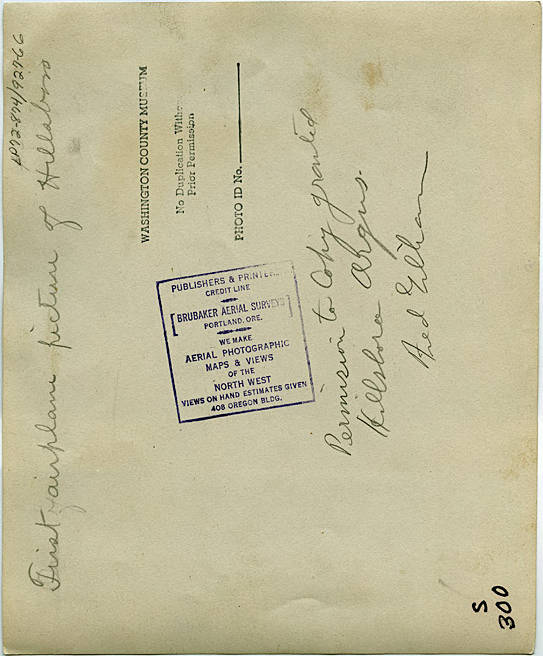 First airplane picture of Hillsboro
WASHINGTON COUNTY MUSEUM
No Duplication Witho
Prior Permission
PHOTO ID No.
PUBLISHERS & PRINTERS
CREDIT LINE
[BRUBAKER AERIAL SURVEYS]
PORTLAND, ORE.
WE MAKE
AERIAL PHOTOGRAPHIC
MAPS & VIEWS
OF THE
NORTH WEST
VIEWS ON HAND ESTIMATES GIVEN
408 OREGON BLDG.
Permission to Copy granted
Hillsboro Argus.
S
300